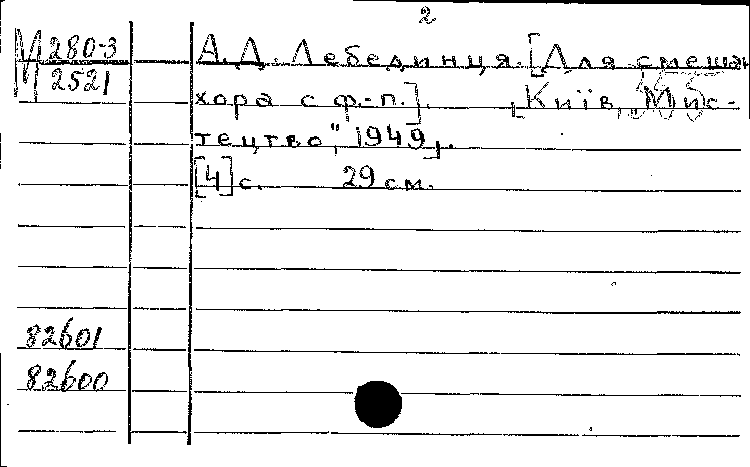 2
М 280-3
2521
А.Д. Лебединця. [Для смешан
хора с ф.-п.]. [Київ, „Мис-
тецтво", 1949].
[4] с. 29 см.
82601
82600